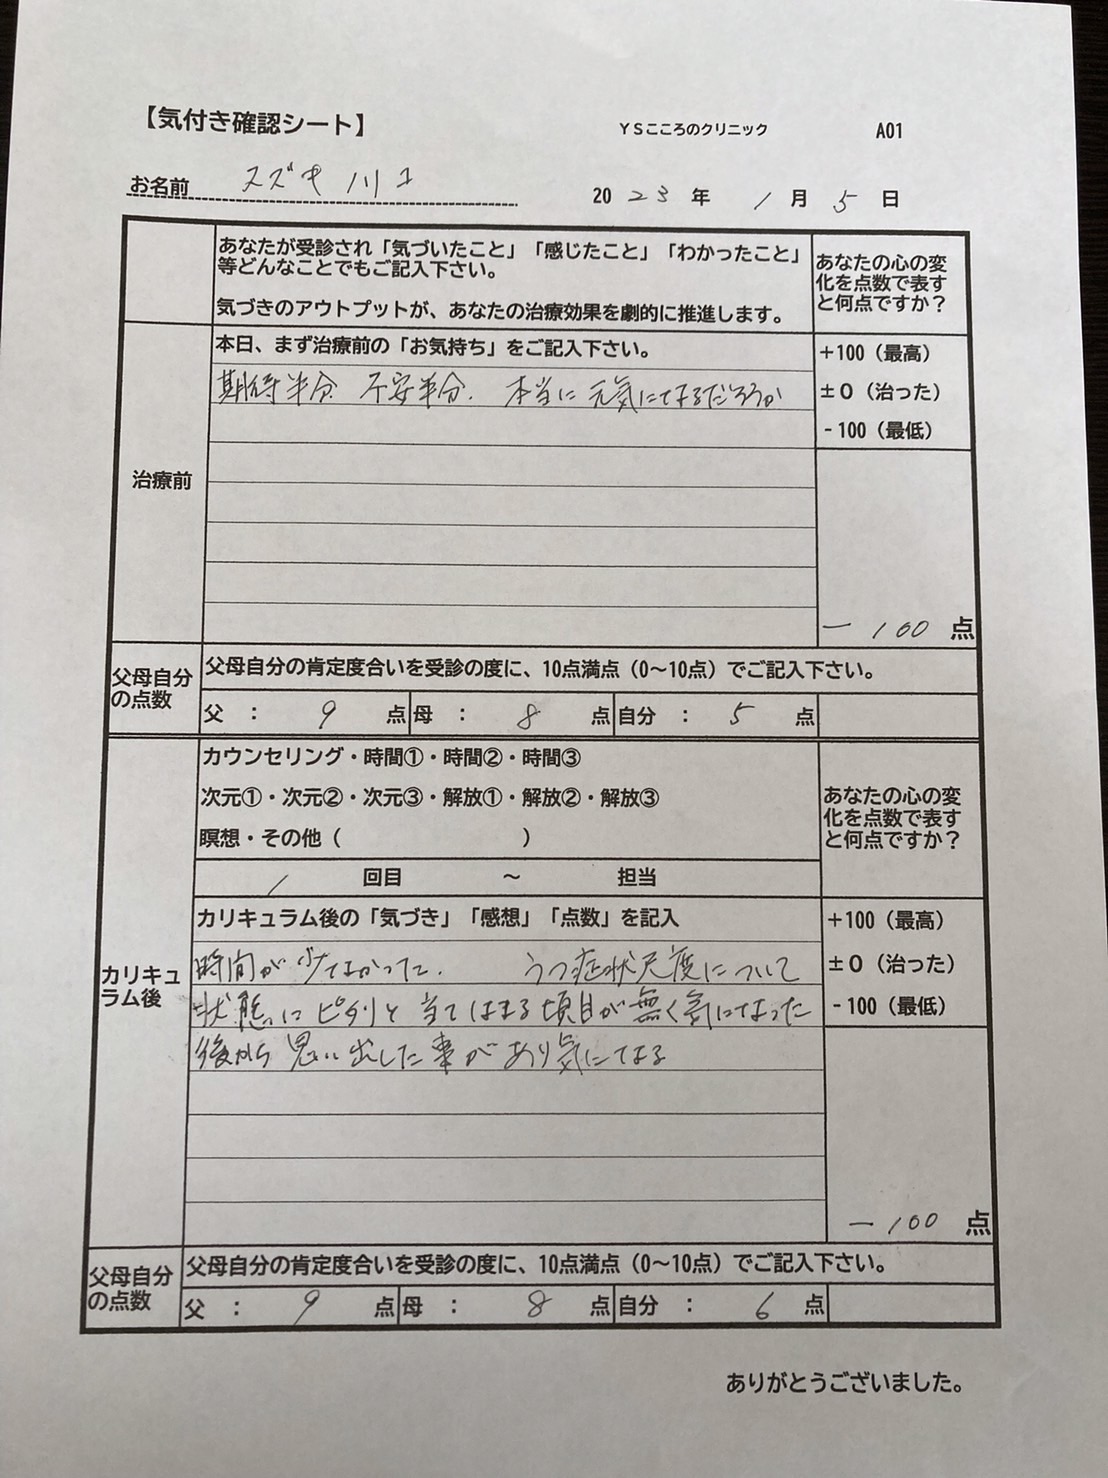 【気付き確認シート】 YSこころのクリニック A01
お名前 スズキ 2023年 1月5日
あなたが受診され「気づいたこと」「感じたこと」「わかったこと」
等どんなことでもご記入下さい。
気づきのアウトプットが、あなたの治療効果を劇的に推進します。
あなたの心の変
化を点数で表す
と何点ですか？
治療前
本日、まず治療前の「お気持ち」をご記入下さい。
期待半分 不安半分. 本当に元気になるだろうか
+100（最高）
±0（治った）
-100（最低）
-100点
父母自分
の点数
父母自分の肯定度合いを受診の度に、10点満点（0～10点）でご記入下さい。
父：9点 母：8点 自分：5点
カウンセリング・時間①・時間②・時間③
次元①・次元②・次元③・解放①・解放②・解放③
瞑想・その他（ ）
1回目 ～ 担当
あなたの心の変
化を点数で表す
と何点ですか？
カリキュ
ラム後
カリキュラム後の「気づき」「感想」「点数」を記入
時間が少なかった. うつ症状尺度について
状態にピタリと当てはまる項目が無く気になった
後から思い出した事があり気になる
+100（最高）
±0（治った）
-100（最低）
-100点
父母自分
の点数
父母自分の肯定度合いを受診の度に、10点満点（0～10点）でご記入下さい。
父：9点 母：8点 自分：6点
ありがとうございました。